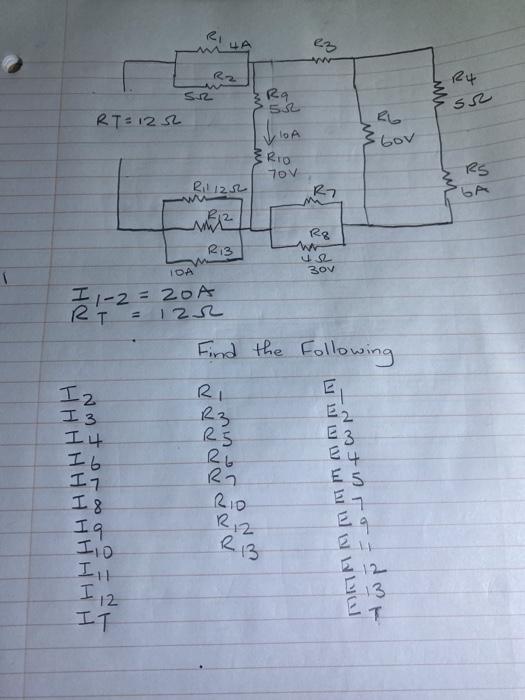 R1 4A
R3
R2
5Ω
R4
5Ω
R9
5Ω
RT=12Ω
10A
R6
60V
R10
70V
R5
6A
R11 12Ω
R7
R12
R8
R13
4Ω
10A
30V
I1-2 = 20A
RT = 12Ω
Find the Following
I2 R1 E1
I3 R3 E2
I4 R5 E3
I6 R6 E4
I7 R7 E5
I8 R10 E7
I9 R12 E9
I10 R13 E11
I11 E12
I12 E13
IT ET